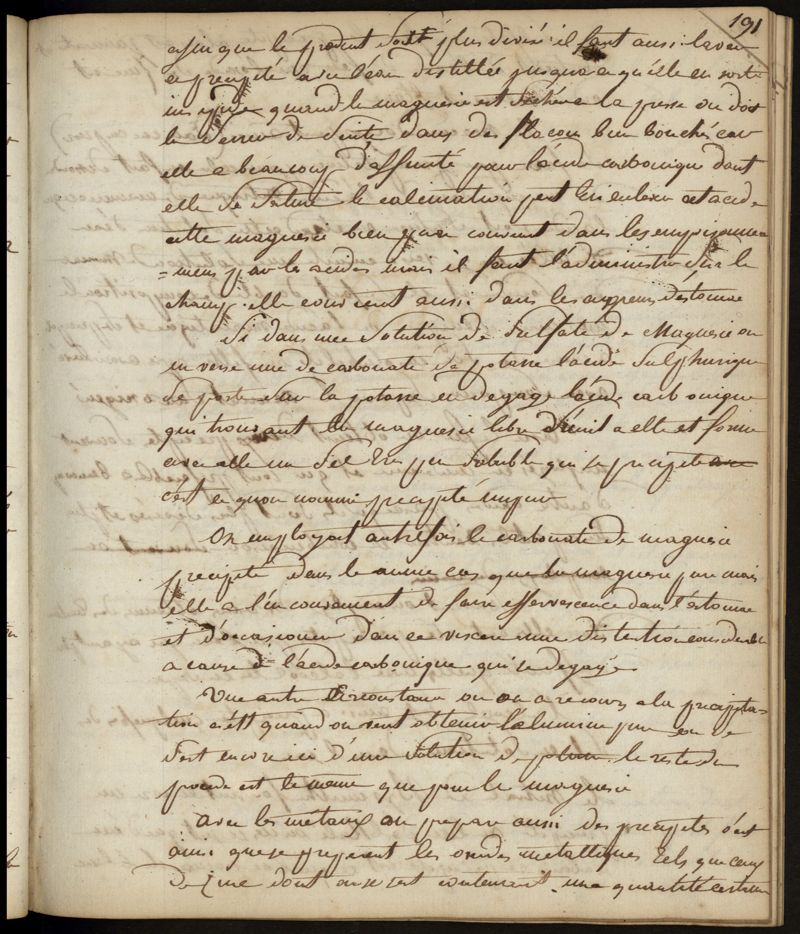 191
afin que le produit soit plus divisé il faut aussi laver
ce precipité avec l'eau distillée jusqua ce qu'elle en sorte
insipide quand la magnesie est sechée a la presse on doit
la serrer de suite dans des flacons bien bouchés car
elle a beaucoup d'affinité pour l'acide carbonique dont
elle se sature la calcination peut lui enlever cet acide
cette magnesie bien pure convient dans les empoisonne
=mens par les acides mais il faut l'administrer sur le
champ elle convient aussi dans les aigreurs d'estomac
Si dans une solution de sulfate de Magnesie on
en verse une de carbonate de potasse l'acide sulphurique
se porte sur la potasse en degage l'acide carbonique
qui trouvant la magnesie libre s'unit a elle et forme
avec elle un sel très peu soluble qui se precipite
c'est ce qu'on nomme precipité impur
On employoit autrefois le carbonate de magnesie
precipité dans le meme cas que la magnesie pure mais
elle a l'inconvenient de faire effervescence dans l'estomac
et d'occasionner dans ce viscere une distention considerable
a cause de l'acide carbonique qui se degage
Une autre circonstance ou on a recours a la precipita=
tion c'est quand on veut obtenir l'alumine pure on se
sert encore ici d'une solution de le reste du
procedé est le meme que pour la magnesie
Avec les metaux on prepare aussi des precipités c'est
ainsi que se preparent les oxides metalliques tels que ceux
de zinc dont on se sert contenant une quantité certaine